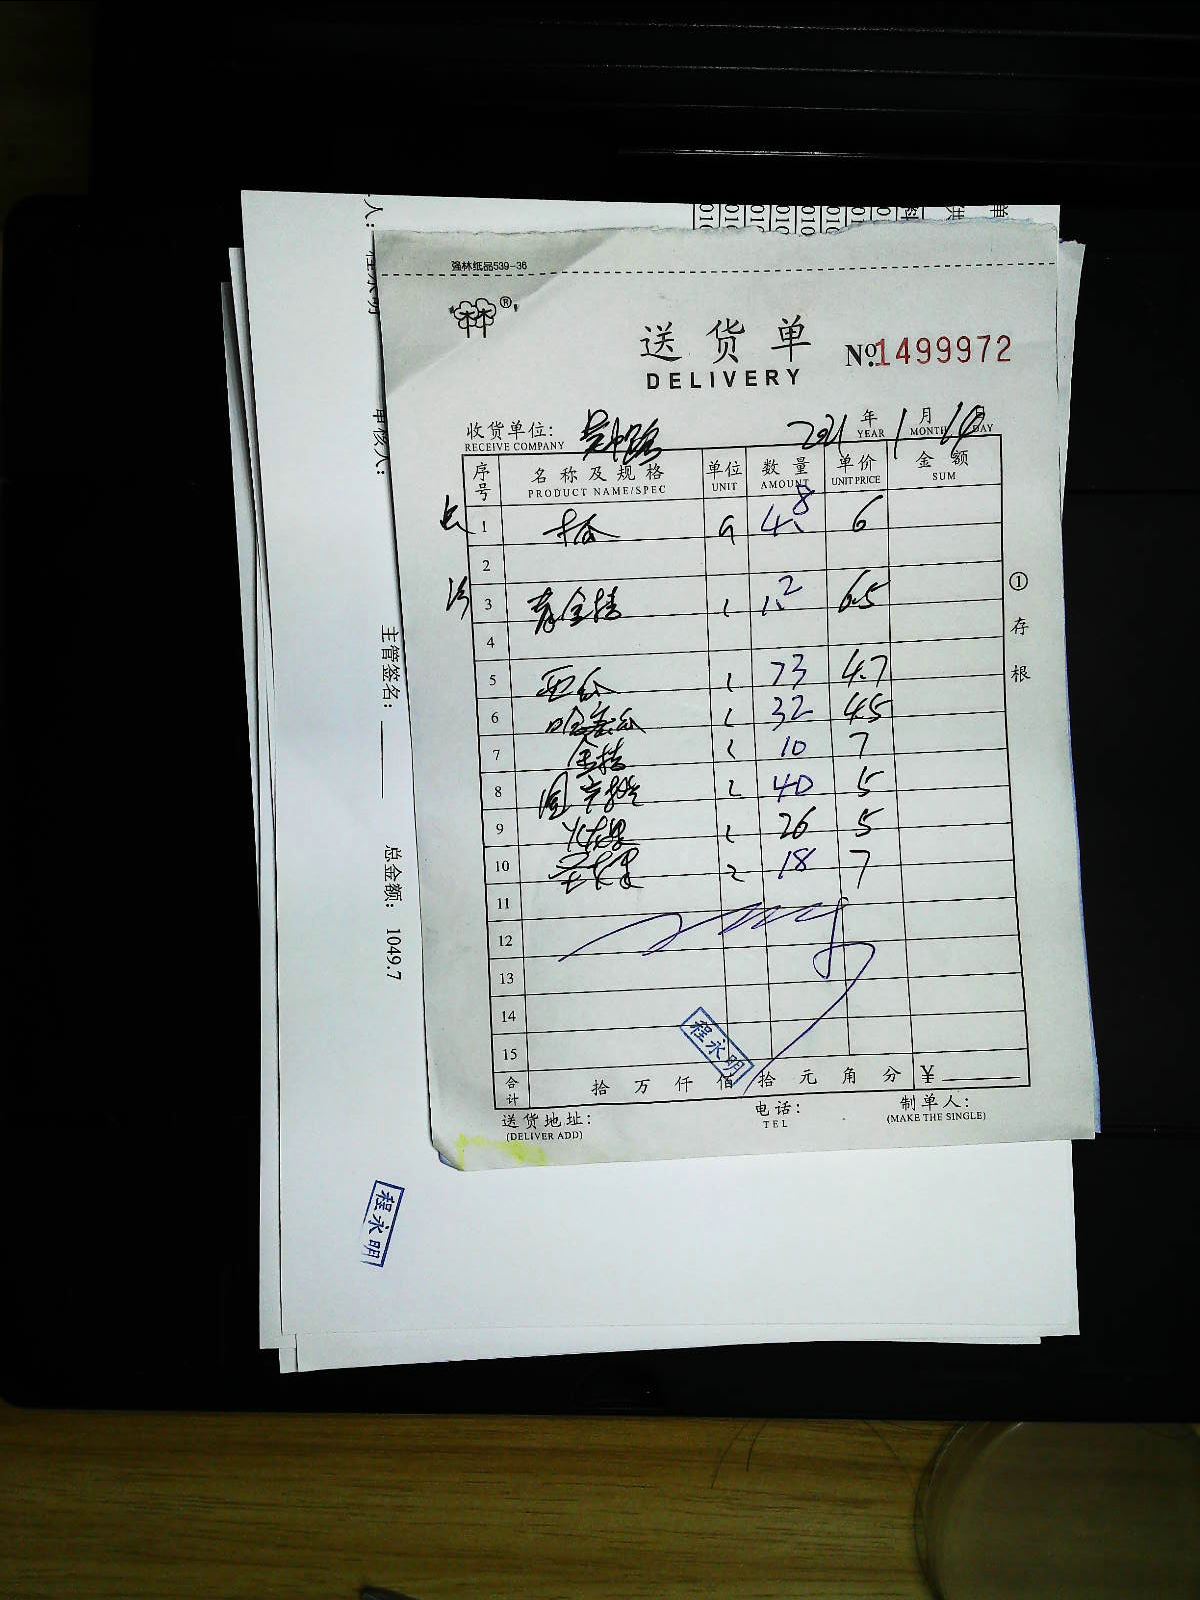 强林纸品539-36
林®
送货单
DELIVERY
№.1499972
收货单位: 吴中路
RECEIVE COMPANY
2021 年 1 月 14 日
YEAR MONTH DAY
序号 名称及规格 单位 数量 单价 金额
PRODUCT NAME/SPEC UNIT AMOUNT UNIT PRICE SUM
1 木瓜 4.8 6
2
3 青金桔 1.2 6.5
4
5 西瓜 73 4.7
6 哈密瓜 32 4.5
7 金桔 10 7
8 40 5
9 火龙果 26 5
10 18 7
11
12
13
14
15
程永明
合计 拾 万 仟 佰 拾 元 角 分 ¥
送货地址:
(DELIVER ADD)
电话:
TEL
制单人:
(MAKE THE SINGLE)
①存根
审核人:
主管签名:
总金额: 1049.7
程永明